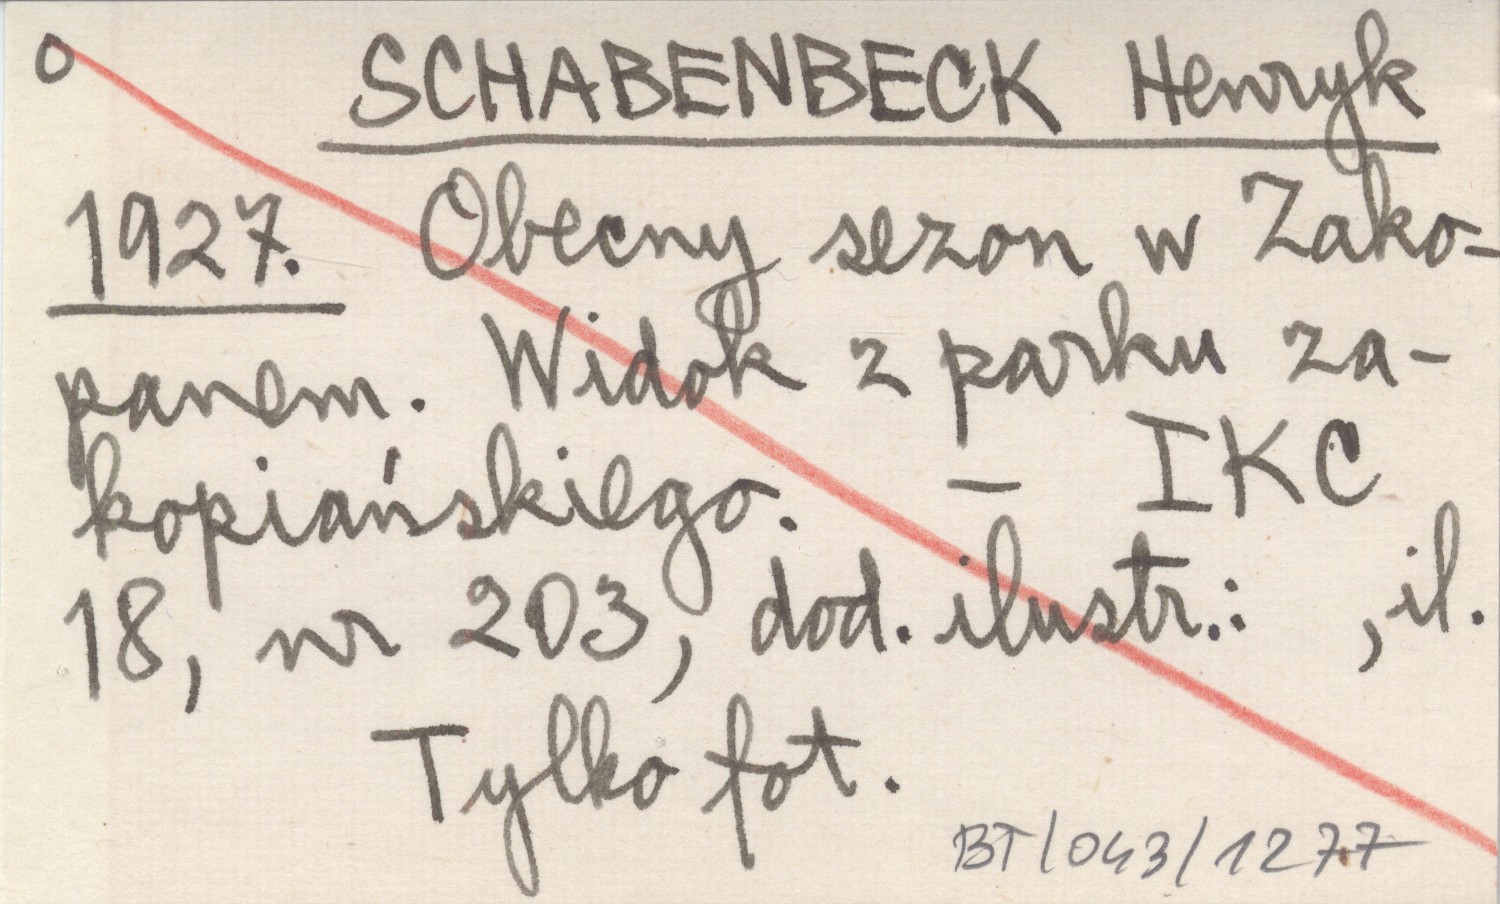 o SCHABENBECK Henryk
1927. Obecny sezon w Zako-
panem. Widok z parku za-
kopiańskiego. - IKC
18, nr 203, dod. ilustr.: , il.
Tylko fot.
BT/043/1277